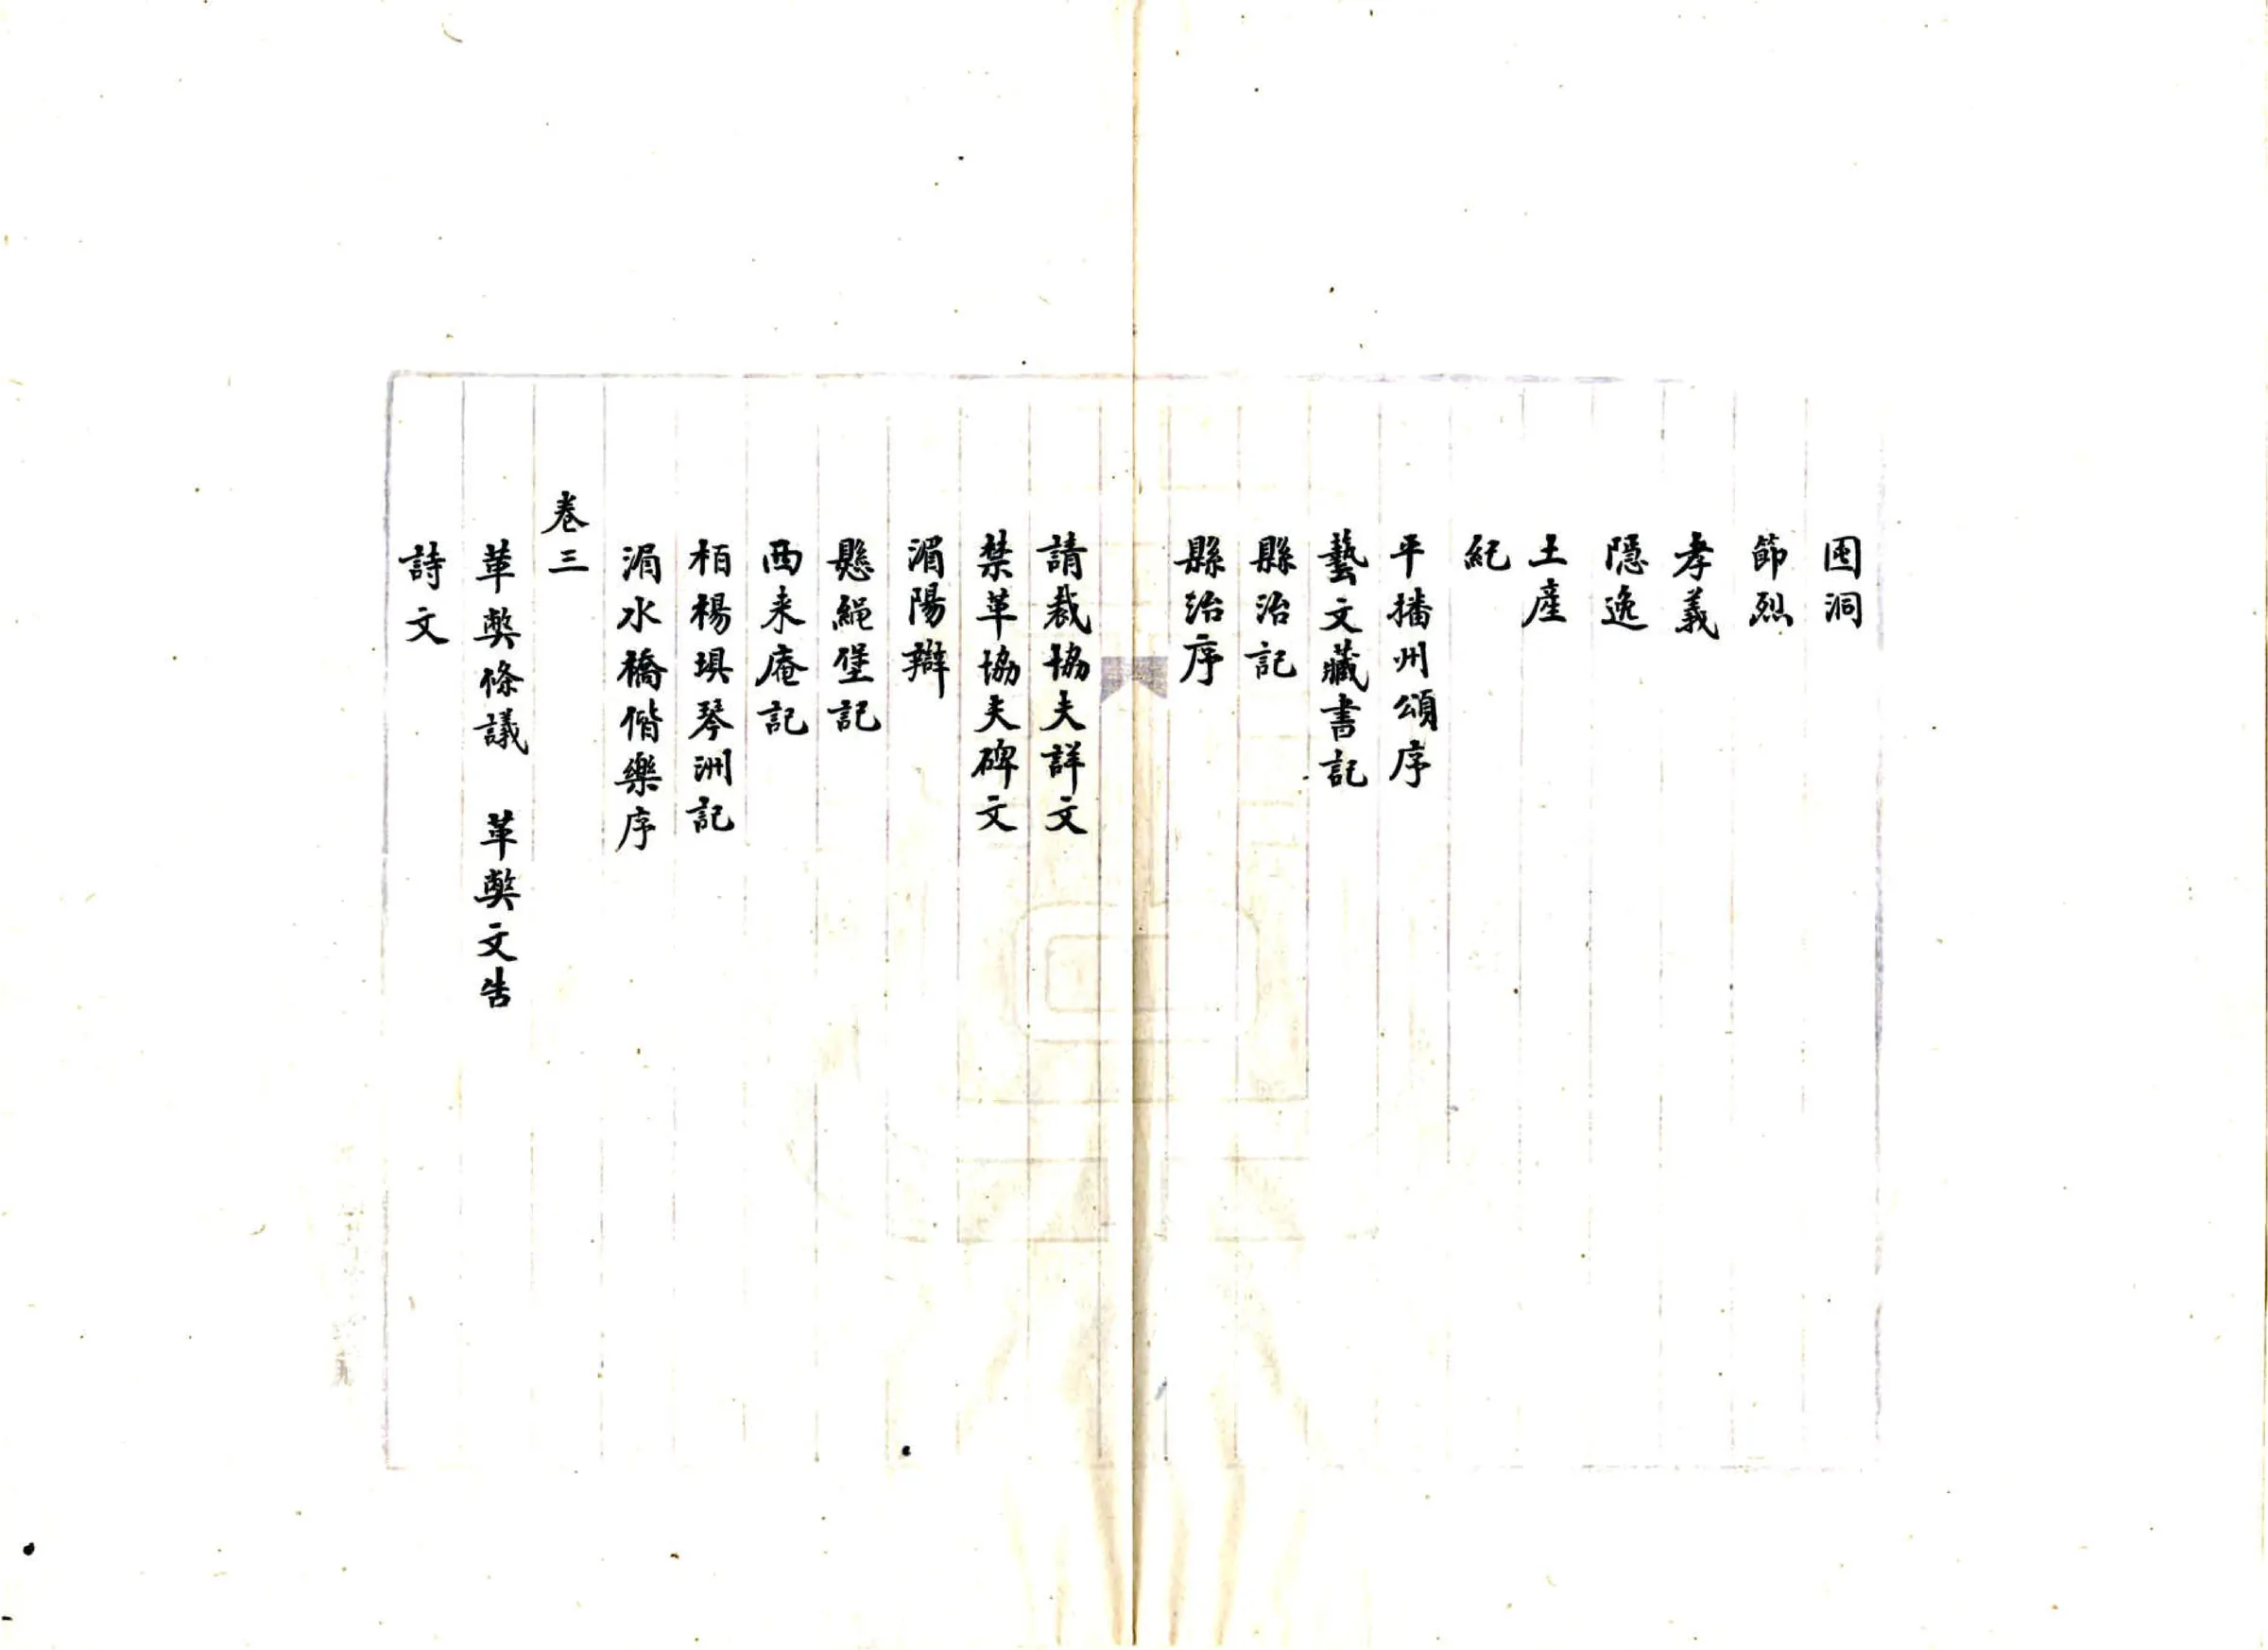 囤洞
節烈
孝義
隱逸
土産
紀
平播州頌序
藝文藏書記
縣治記
縣治序
請裁協夫詳文
禁革協夫碑文
湄陽辯
懸繩堡記
西来庵記
栢楊垻琴洲記
湄水橋偕樂序
卷三
革獘條議　革獘文告
詩文